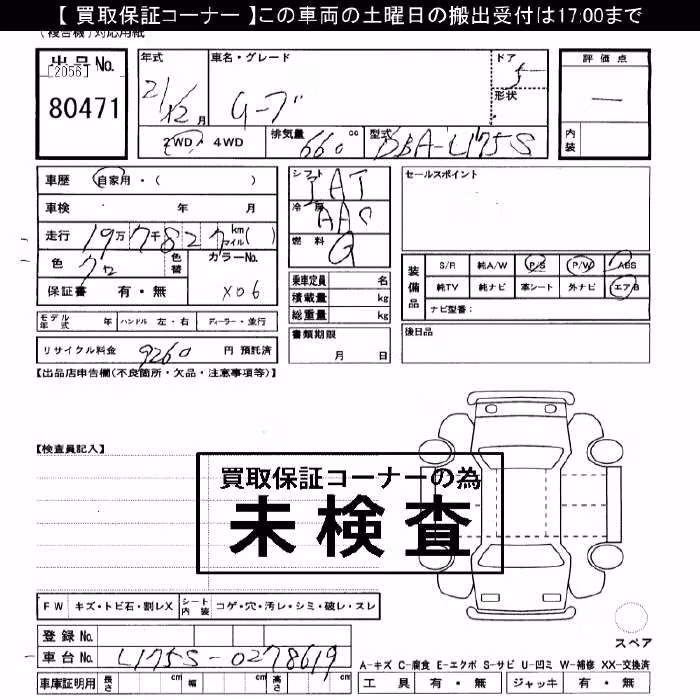 【 買取保証コーナー 】この車両の土曜日の搬出受付は17:00まで
(複合機)対応用紙
出品No.
[2056]
80471
年式
21/12 月
車名・グレード
ドア
5
形状
評価点
—
内装
2WD・4WD
排気量 660 cc
型式 DBA-L175S
車歴 自家用・( )
車検 年 月
走行 19万7千827 km マイル( )
色 クロ 色替
カラーNo. X06
保証書 有・無
シフト IAT
冷房 AAC
燃料 G
セールスポイント
乗車定員 名
積載量 kg
総重量 kg
装備品
S/R 純A/W P/S P/W ABS
純TV 純ナビ 革シート 外ナビ エアB
ナビ型番:
モデル年式 年 ハンドル 左・右 ディーラー・並行
書類期限 月 日
後日品
リサイクル料金 9260 円 預託済
【出品店申告欄(不良箇所・欠品・注意事項等)】
【検査員記入】
買取保証コーナーの為
未検査
FW キズ・トビ石・割レX シート内装 コゲ・穴・汚レ・シミ・破レ・スレ
スペア
登録No.
車台No. L175S-0278619
A-キズ C-腐食 E-エクボ S-サビ U-凹ミ W-補修 XX-交換済
車庫証明用 長さ cm 幅 cm 高さ cm
工具 有・無 ジャッキ 有・無